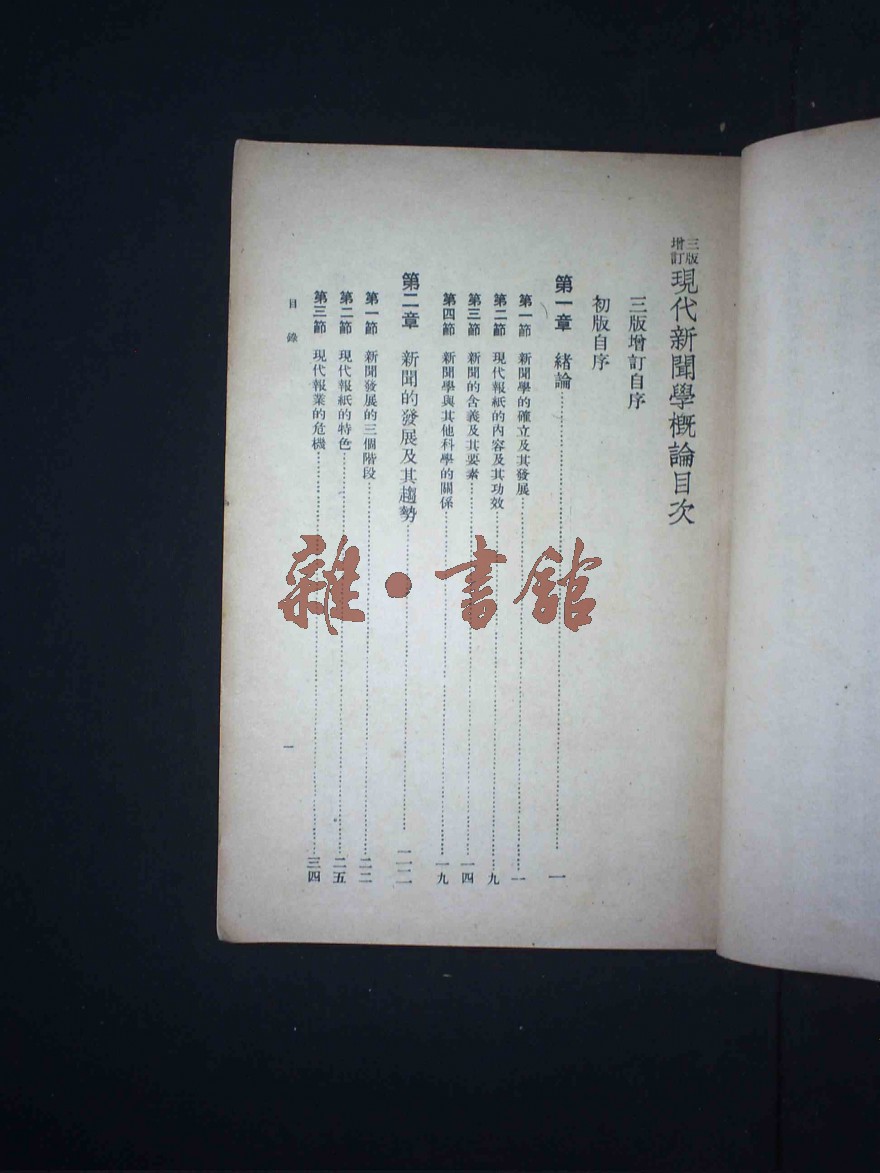 三版增訂現代新聞學概論目次
三版增訂自序
初版自序
第一章 緒論……一
第一節 新聞學的確立及其發展……一
第二節 現代報紙的內容及其功效……九
第三節 新聞的含義及其要素……一四
第四節 新聞學與其他科學的關係……一九
第二章 新聞的發展及其趨勢……二二
第一節 新聞發展的三個階段……二二
第二節 現代報紙的特色……二五
第三節 現代報業的危機……三四
目錄
一
雜·書館